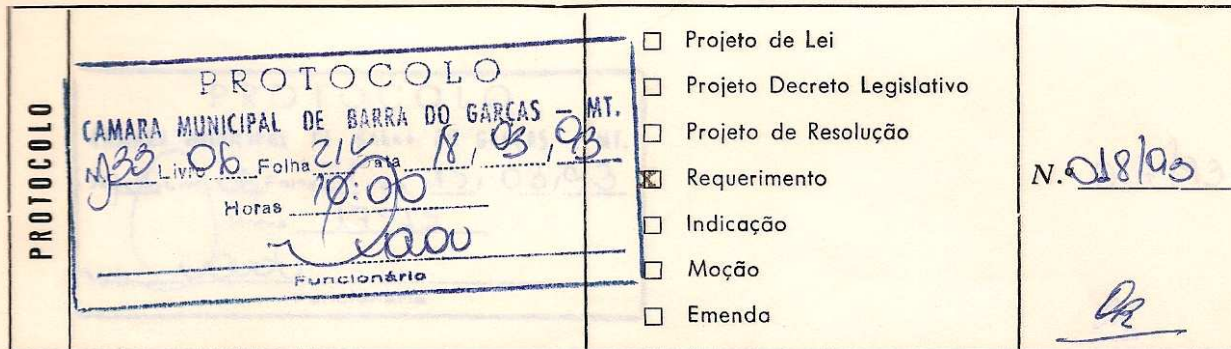 PROTOCOLO
PROTOCOLO
CAMARA MUNICIPAL DE BARRA DO GARÇAS - MT.
Nº 33 Livro 06 Folha 21V Data 18, 03, 93
Horas 10:00
Funcionário
☐ Projeto de Lei
☐ Projeto Decreto Legislativo
☐ Projeto de Resolução
☒ Requerimento
☐ Indicação
☐ Moção
☐ Emenda
N.º 018/93